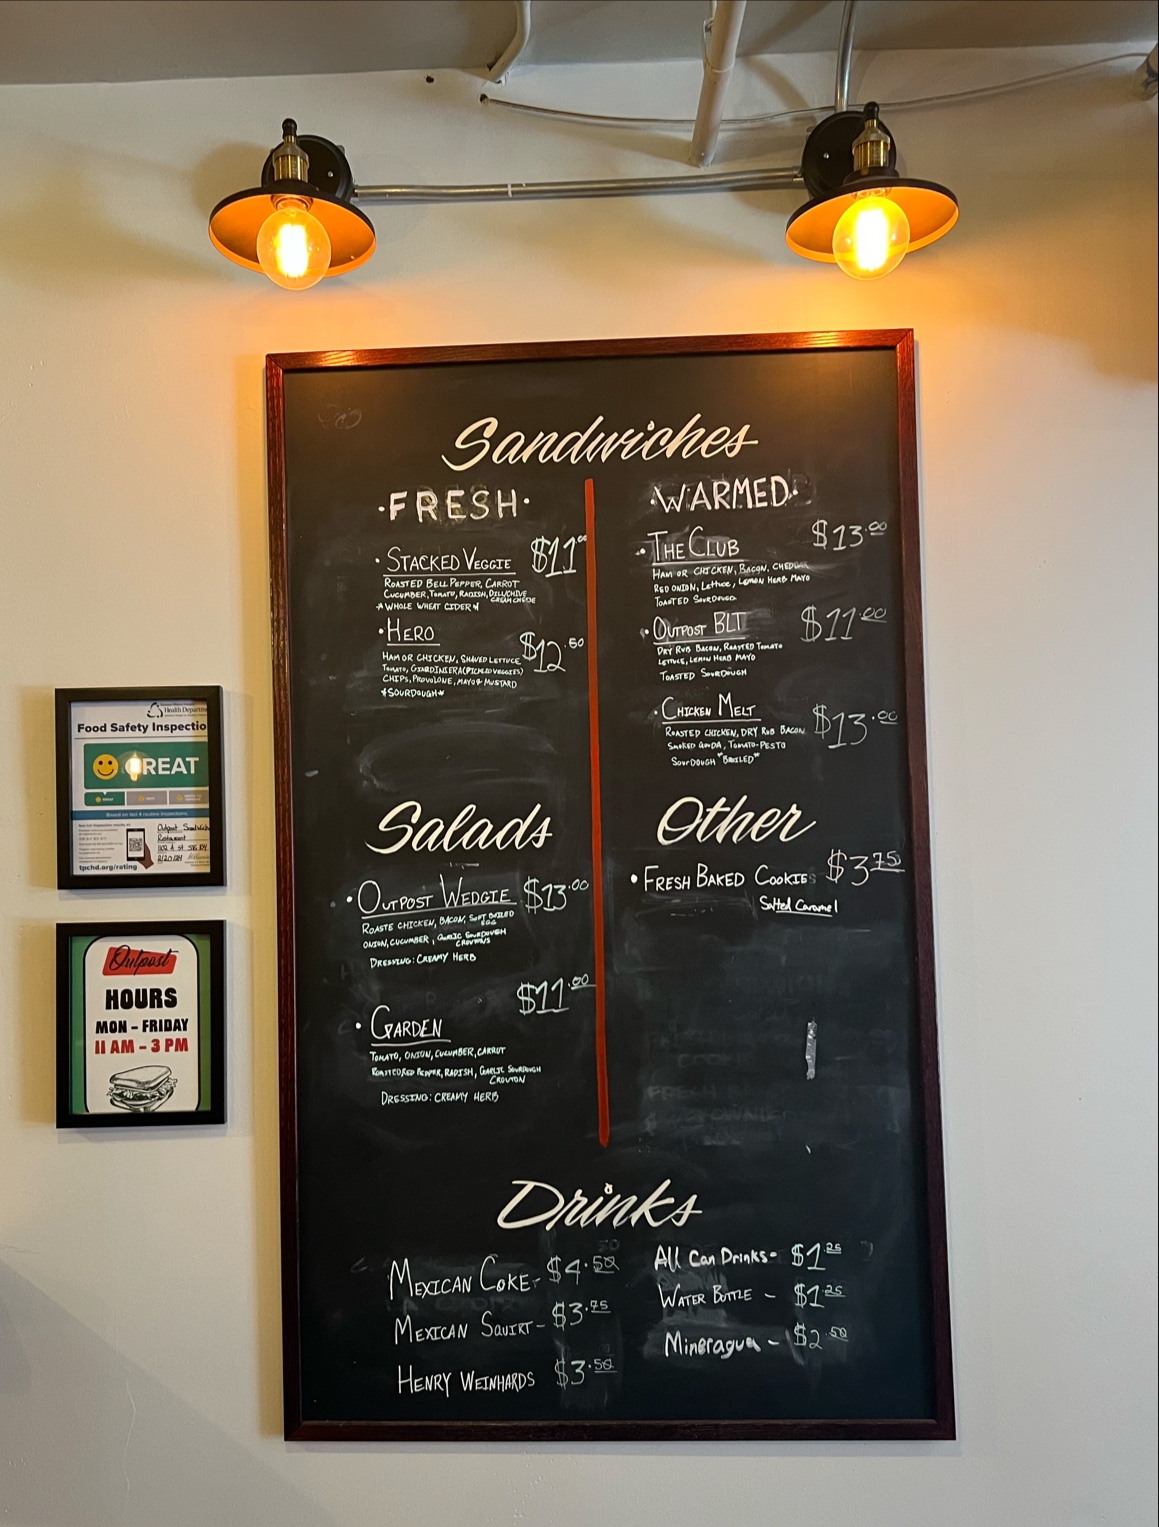 Sandwiches
·FRESH·
· STACKED VEGGIE $11.00
ROASTED BELL PEPPER, CARROT
CUCUMBER, TOMATO, RADISH, DILL/CHIVE
CREAM CHEESE
*WHOLE WHEAT CIDER*
· HERO $12.50
HAM OR CHICKEN, SHAVED LETTUCE
TOMATO, GIARDINIERA (PICKLED VEGGIES)
CHIPS, PROVOLONE, MAYO & MUSTARD
*SOURDOUGH*
·WARMED·
· THE CLUB $13.00
HAM OR CHICKEN, BACON, CHEDDAR
RED ONION, LETTUCE, LEMON HERB MAYO
TOASTED SOURDOUGH
· OUTPOST BLT $11.00
DRY RUB BACON, ROASTED TOMATO
LETTUCE, LEMON HERB MAYO
TOASTED SOURDOUGH
· CHICKEN MELT $13.00
ROASTED CHICKEN, DRY RUB BACON
SMOKED GOUDA, TOMATO-PESTO
SOURDOUGH *BROILED*
Salads
· OUTPOST WEDGIE $13.00
ROASTE CHICKEN, BACON, SOFT BOILED
EGG
ONION, CUCUMBER, GARLIC SOURDOUGH
CROUTONS
DRESSING: CREAMY HERB
$11.00
· GARDEN
TOMATO, ONION, CUCUMBER, CARROT
ROASTED RED PEPPER, RADISH, GARLIC SOURDOUGH
CROUTON
DRESSING: CREAMY HERB
Other
· FRESH BAKED COOKIES $3.75
Salted Caramel
Drinks
MEXICAN COKE - $4.50
MEXICAN SQUIRT - $3.75
HENRY WEINHARDS $3.50
All Can Drinks - $1.25
WATER BOTTLE - $1.25
Mineragua - $2.50
Health Departm
Food Safety Inspectio
GREAT
Based on last 4 routine inspections
Outpost Sandwich
Restaurant
2/20/24
tpchd.org/rating
Outpost
HOURS
MON - FRIDAY
11 AM - 3 PM